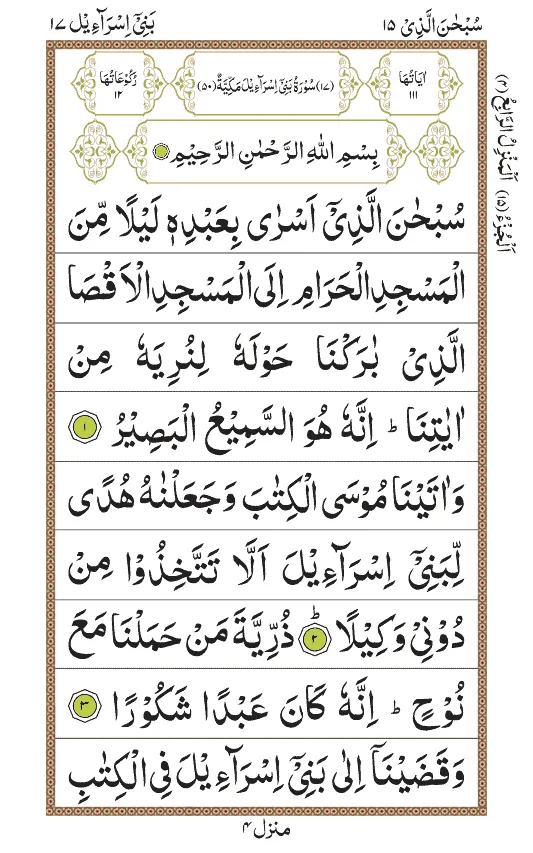 سُبْحٰنَ الَّذِیْ ۱۵
بَنِیْۤ اِسْرَآءِیْل ۱۷
اٰیَاتُهَا ۱۱۱
(۱۷) سُوْرَةُ بَنِیْۤ اِسْرَآءِیْلَ مَكِّیَّةٌ (۵۰)
رُكُوْعَاتُهَا ۱۲
بِسْمِ اللّٰهِ الرَّحْمٰنِ الرَّحِیْمِ
سُبْحٰنَ الَّذِیْۤ اَسْرٰی بِعَبْدِهٖ لَیْلًا مِّنَ
الْمَسْجِدِ الْحَرَامِ اِلَی الْمَسْجِدِ الْاَقْصَا
الَّذِیْ بٰرَكْنَا حَوْلَهٗ لِنُرِیَهٗ مِنْ
اٰیٰتِنَا ؕ اِنَّهٗ هُوَ السَّمِیْعُ الْبَصِیْرُ ۱
وَاٰتَیْنَا مُوْسَی الْكِتٰبَ وَجَعَلْنٰهُ هُدًی
لِّبَنِیْۤ اِسْرَآءِیْلَ اَلَّا تَتَّخِذُوْا مِنْ
دُوْنِیْ وَكِیْلًا ؕ ۲ ذُرِّیَّةَ مَنْ حَمَلْنَا مَعَ
نُوْحٍ ؕ اِنَّهٗ كَانَ عَبْدًا شَكُوْرًا ۳
وَقَضَیْنَاۤ اِلٰی بَنِیْۤ اِسْرَآءِیْلَ فِی الْكِتٰبِ
منزل ۴
اَلْمَنْزِلُ الرَّابِعُ (۴)
اَلْجُزْءُ (۱۵)